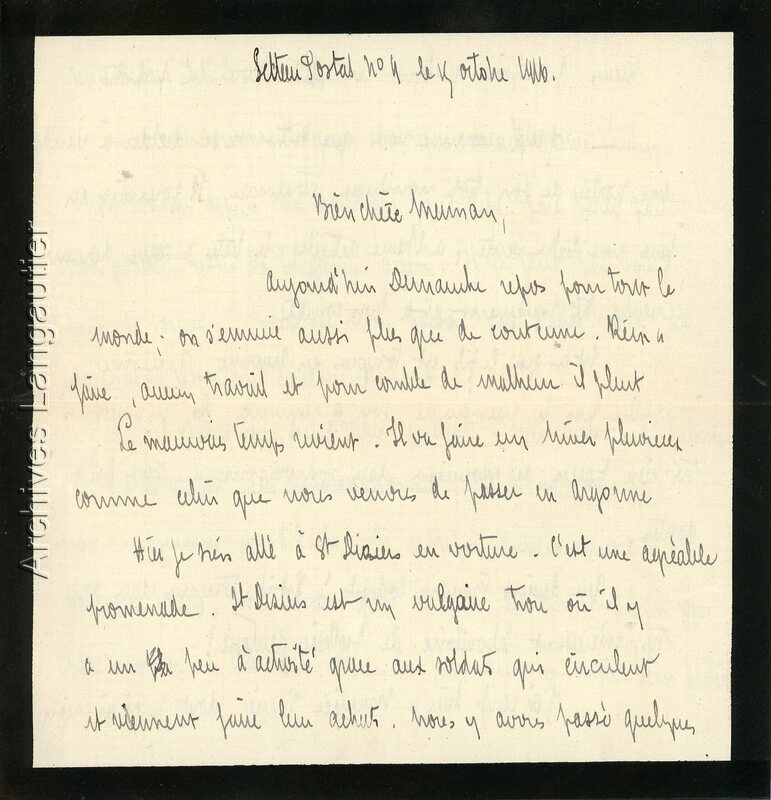 Secteur Postal No 4 le 15 octobre 1916.
Bien chère Maman,
aujourd'hui Dimanche repos pour tout le
monde ; on s'ennuie aussi plus que de coutume. Rien à
faire, aucun travail et pour comble de malheur il pleut
Le mauvais temps revient. Il va faire un hiver pluvieux
comme celui que nous venons de passer en Argonne
Hier je suis allé à St Dizier en voiture. C'est une agréable
promenade. St Dizier est un vulgaire trou où il y
a un peu d'activité grâce aux soldats qui circulent
et viennent faire leur achats. Nous y avons passé quelques
Archives Langautier